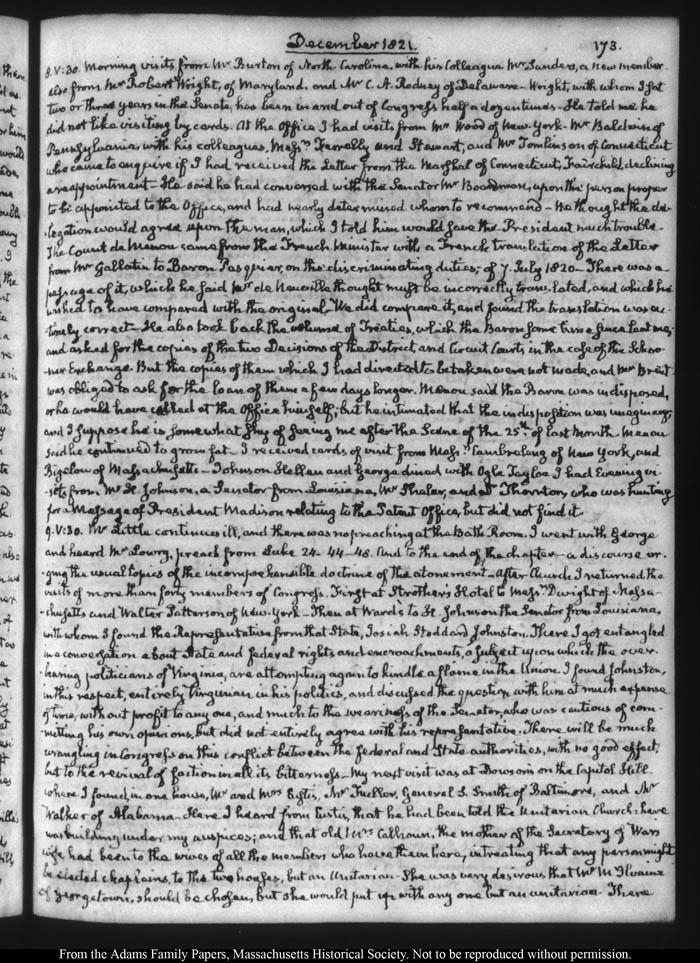 December 1821.
173.
8. V:30. Morning visits from Mr Burton of North Carolina, with his Colleague Mr Sanders, a new member.
also from Mr Robert Wright, of Maryland, and Mr C. A. Rodney of Delaware. Wright, with whom I sat
two or three years in the Senate, has been in and out of Congress half a dozen times. He told me he
did not like visiting by cards. At the Office I had visits from Mr Wood of New-York. Mr Baldwin of
Pennsylvania with his colleagues, Messrs and Stewart, and Mr Tomlinson of Connecticut
who came to enquire if I had received the Letter from the Marshal of Connecticut, Fairchild, declining
a reappointment. He said he had conversed with the Senator Mr Boardman, upon the person proper
to be appointed to the Office, and had nearly determined whom to recommend. He thought the de-
legation would agree upon the man, which I told him would save the President much trouble.
The Count de Menou came from the French Minister with a French translation of the Letter
from Mr Gallatin to Baron Pasquier, on the discriminating duties; of 7. July 1820. There was a
passage of it, which he said Mr de Neuville thought must be incorrectly translated, and which he
wished to have compared with the original. We did compare it, and found the translation was en-
tirely correct. He also took back the volume of Treaties, which the Baron some time since lent me,
and asked for the copies of the two Decisions of the District, and Circuit Courts, in the case of the Schoo-
ner Exchange. But the copies of them which I had directed to be taken were not made, and Mr Brent
was obliged to ask for the loan of them a few days longer. Menou said the Baron was indisposed,
or he would have called at the Office himself; but he intimated that the indisposition was imaginary;
and I suppose he is somewhat shy of seeing me after the Scene of the 25th of last Month. Menou
said he continued to grow fat. I received cards of visit from Messrs Cambreleng of New York, and
Bigelow of Massachusetts. Johnson Hellen and George dined with Ogle Tayloe. I had Evening vi-
sits from Mr H. Johnson, a Senator from Louisiana, Mr Thaler, and Dr Thornton, who was hunting
for a Message of President Madison relating to the Patent Office, but did not find it.
9. V:30. Mr Little continues ill, and there was no preaching at the Bath Room. I went with George
and heard Mr Lowry, preach from Luke 24. 44-48. and to the end of the chapter. a discourse ur-
ging the usual topics of the incomprehensible doctrine of the atonement. After Church I returned the
visits of more than forty members of Congress. First at Strother's Hotel to Messrs Dwight of Massa-
chusetts and Walter Patterson of New-York. Then at Ward's to H. Johnson the Senator from Louisiana,
with whom I found the Representative from that State, Josiah Stoddard Johnston. There I got entangled
in a conversation about State and federal rights and encroachments, a subject upon which the over-
bearing politicians of Virginia, are attempting again to kindle a flame in the Union. I found Johnston,
in this respect, entirely Virginian in his politics, and discussed the question with him at much expense
of time, without profit to any one, and much to the weariness of the Senator, who was cautious of com-
mitting his own opinions, but did not entirely agree with his representative. There will be much
wrangling in Congress on this conflict between the federal and State authorities, with no good effect,
but to the revival of faction in all its bitterness. My next visit was at Dowson's on the Capitol Hill.
where I found, in one house, Mr and Mrs Eustis, Mr Fuller, General S. Smith, of Baltimore, and Mr
Walker of Alabama. Here I heard from Eustis, that he had been told the Unitarian Church here
was building under my auspices; and that old Mrs Calhoun, the mother of the Secretary of War's
wife, had been to the wives of all the members who have them here, intreating that any person might
be elected chaplains, to the two houses, but an Unitarian. She was very desirous that Mr M'Ilvaine
of Georgetown, should be chosen, but she would put up with any one but an unitarian. There
From the Adams Family Papers, Massachusetts Historical Society. Not to be reproduced without permission.